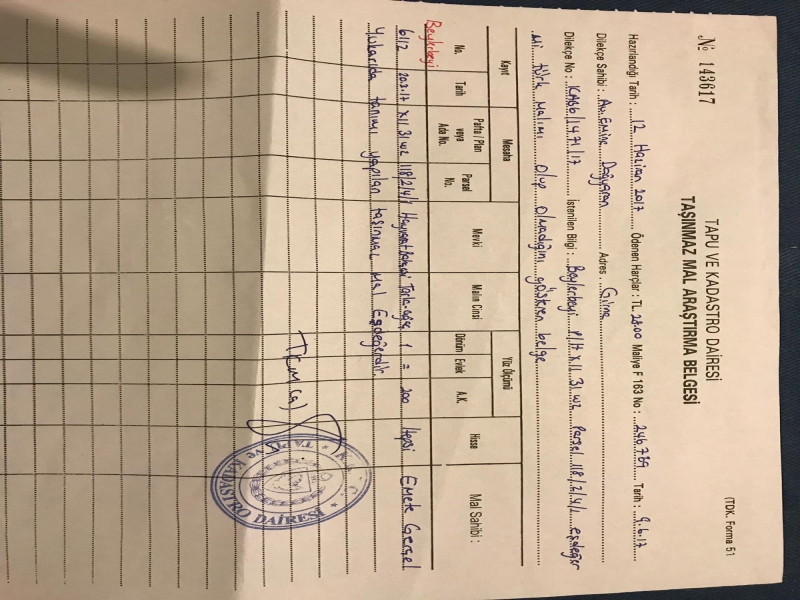 (TDK. Forma 51
TAPU VE KADASTRO DAİRESİ
TAŞINMAZ MAL ARAŞTIRMA BELGESİ
№ 143617
Hazırlandığı Tarih : 12 Haziran 2017 Ödenen Harçlar : TL 28.00 Maliye F 163 No : 246789 Tarih : 9.6.17
Dilekçe Sahibi : Av. Emine Adres : Girne
Dilekçe No : /1471/17 İstenilen Bilgi : Beylerbeyi P/H XII 31 w2 Parsel 118/2/4/1 eşdeğer
mi türk malımı olup olmadığını gösteren belge
Kayıt Mesaha Mevki Malın Cinsi Yüz Ölçümü Hisse Mal Sahibi :
No. Tarih Pafta / Plan veya Ada No. Parsel No. Dönüm Evlek A.K.
Beylerbeyi
61/2 20.2.17 XII 31 w2 118/2/4/1 1 = 200 Hepsi Emek Gersel
Yukarıda tanımı yapılan taşınmaz mal Eşdeğerdir.
TKM (a)
TAPU ve KADASTRO DAİRESİ